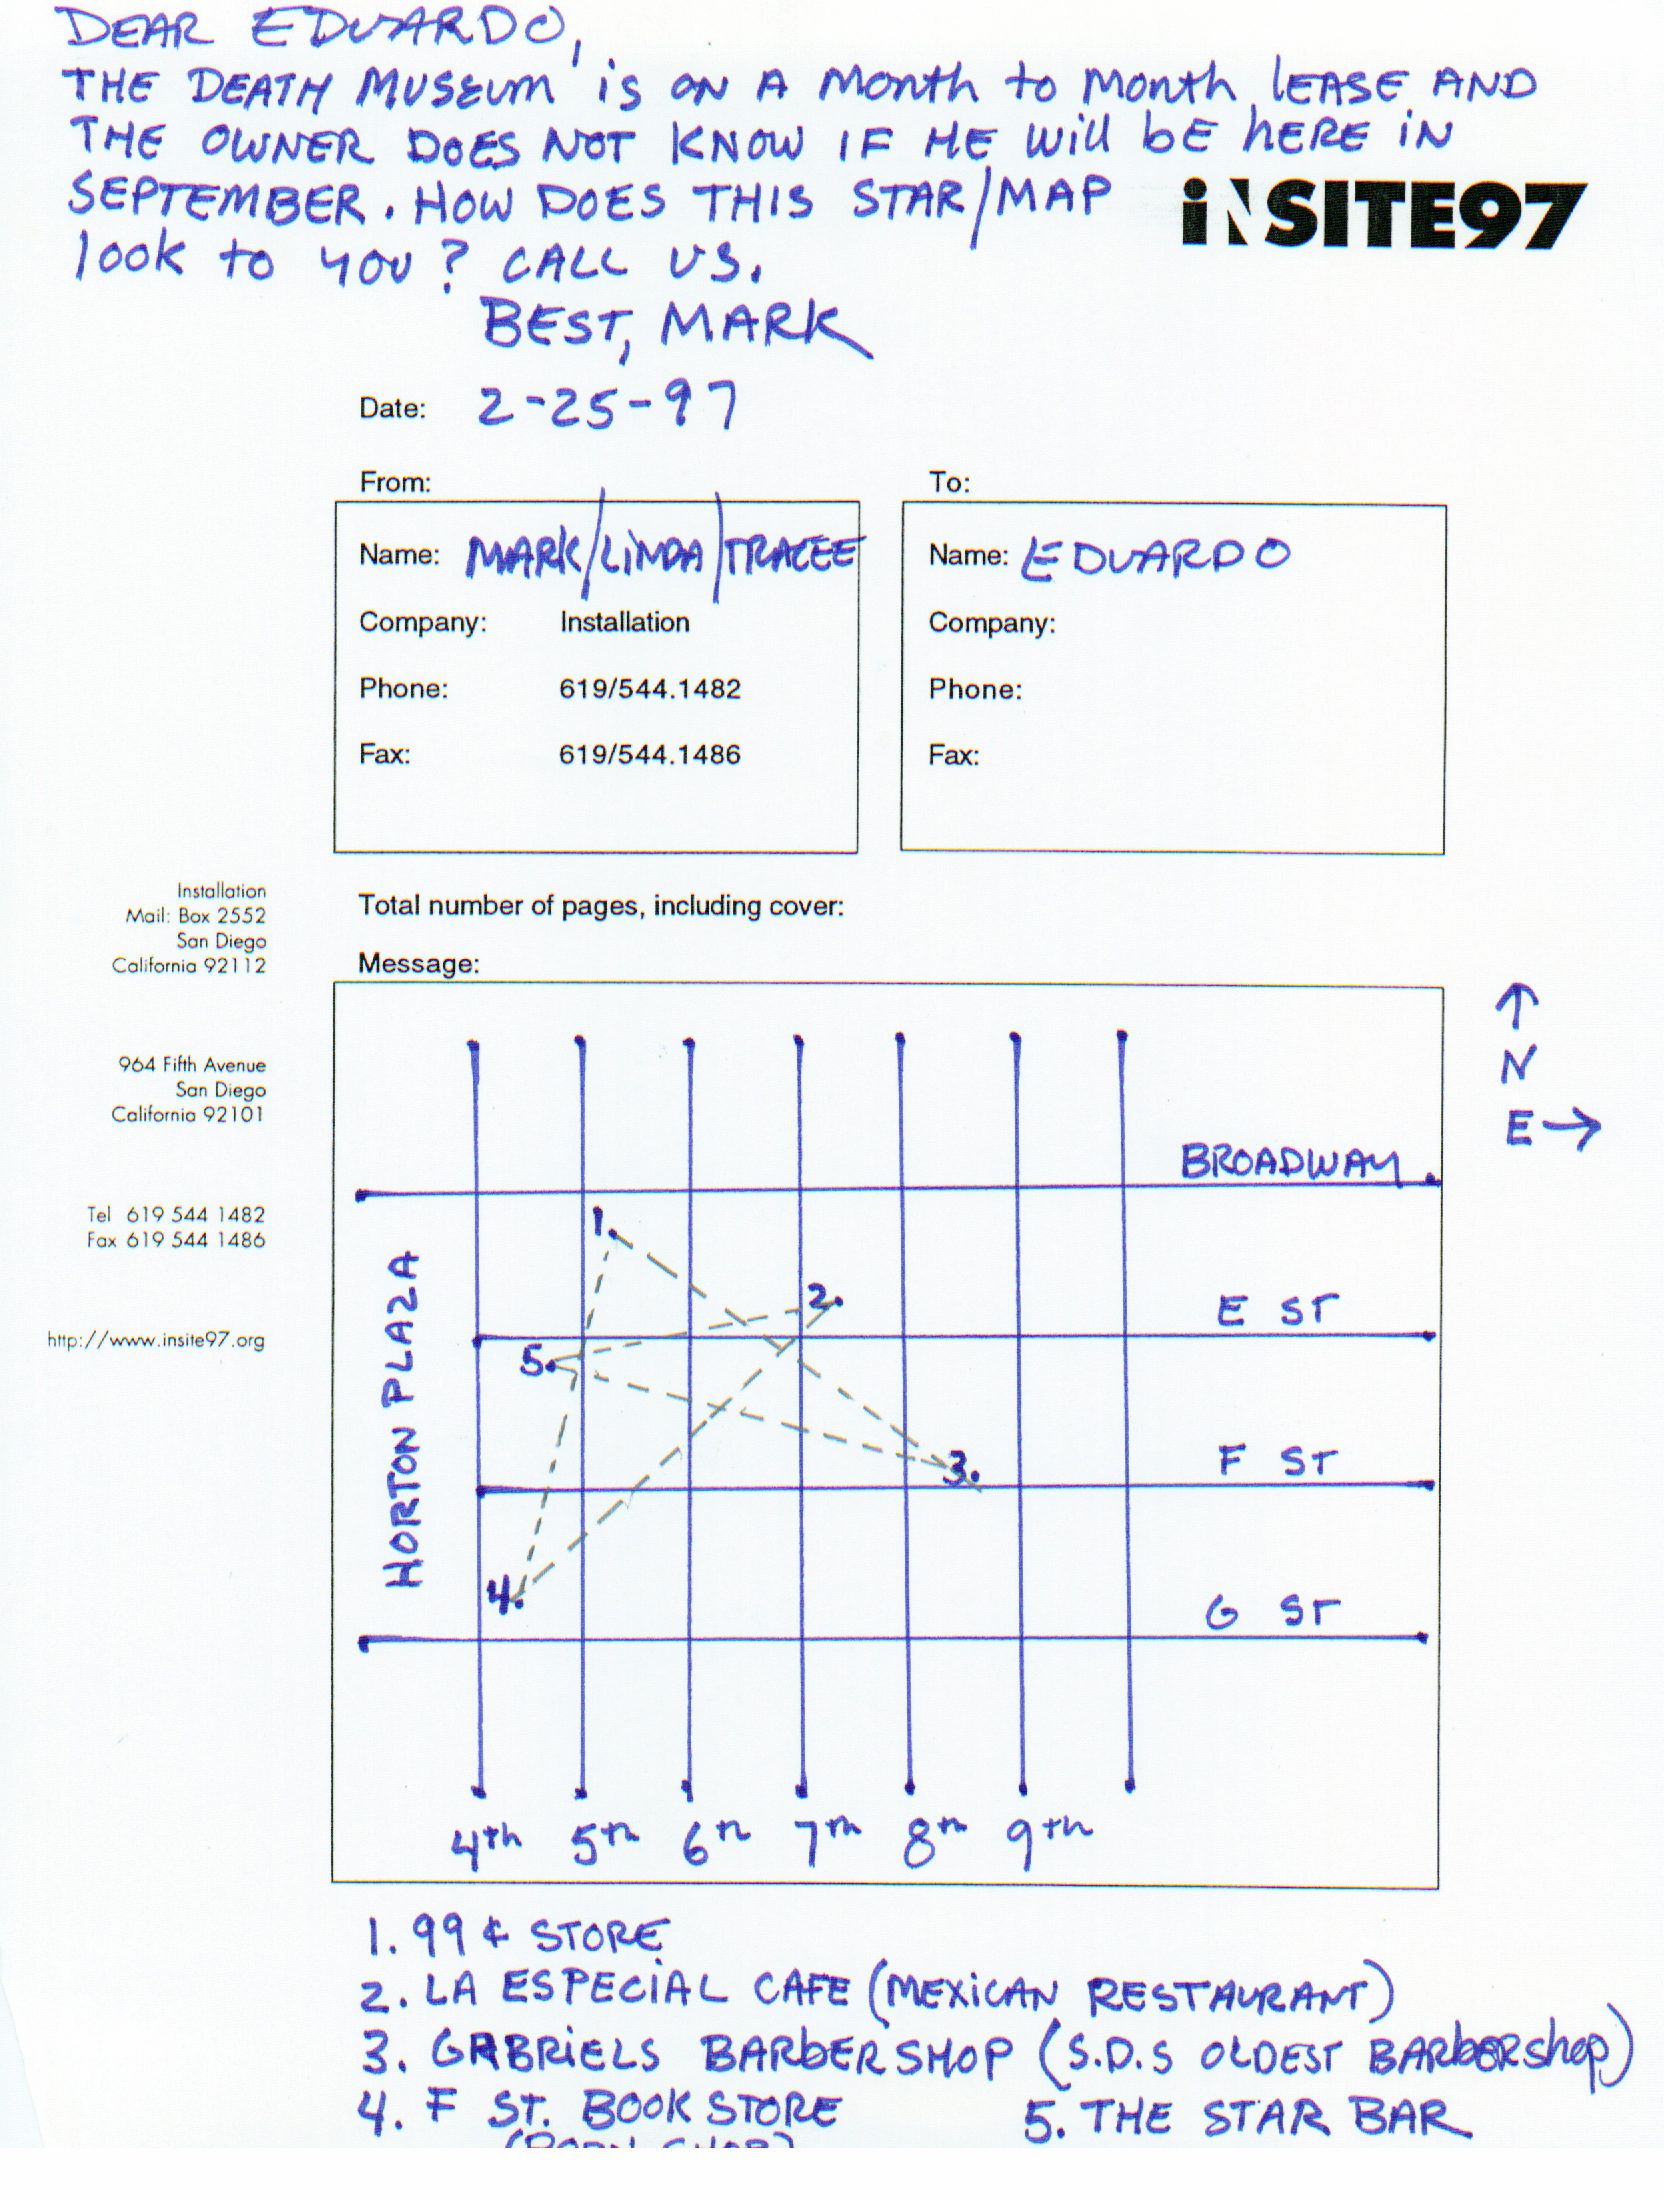 DEAR EDUARDO,
THE DEATH MUSEUM is ON A Month to Month lEASE AND
THE OWNER DOES NOT KNOW IF HE will bE hERE iN
SEPTEMBER. HOW DOES THIS STAR/MAP
look to you? CALL US.
iNSITE97
BEST, MARK
Date: 2-25-97
From:
To:
Name: MARK/LiNDA/TRACEE
Name: EDUARDO
Company: Installation
Company:
Phone: 619/544.1482
Phone:
Fax: 619/544.1486
Fax:
Installation
Mail: Box 2552
San Diego
California 92112
Total number of pages, including cover:
Message:
964 Fifth Avenue
San Diego
California 92101
Tel 619 544 1482
Fax 619 544 1486
http://www.insite97.org
N
E
BROADWAY
1.
2.
E ST
5.
HORTON PLAZA
3.
F ST
4.
G ST
4th 5th 6th 7th 8th 9th
1. 99¢ STORE
2. LA ESPECIAL CAFE (MEXICAN RESTAURANT)
3. GABRiELS BARbERSHOP (S.D.S OLDEST BARbERshop)
4. F ST. BOOKSTORE 5. THE STAR BAR
(PORN SHOP)